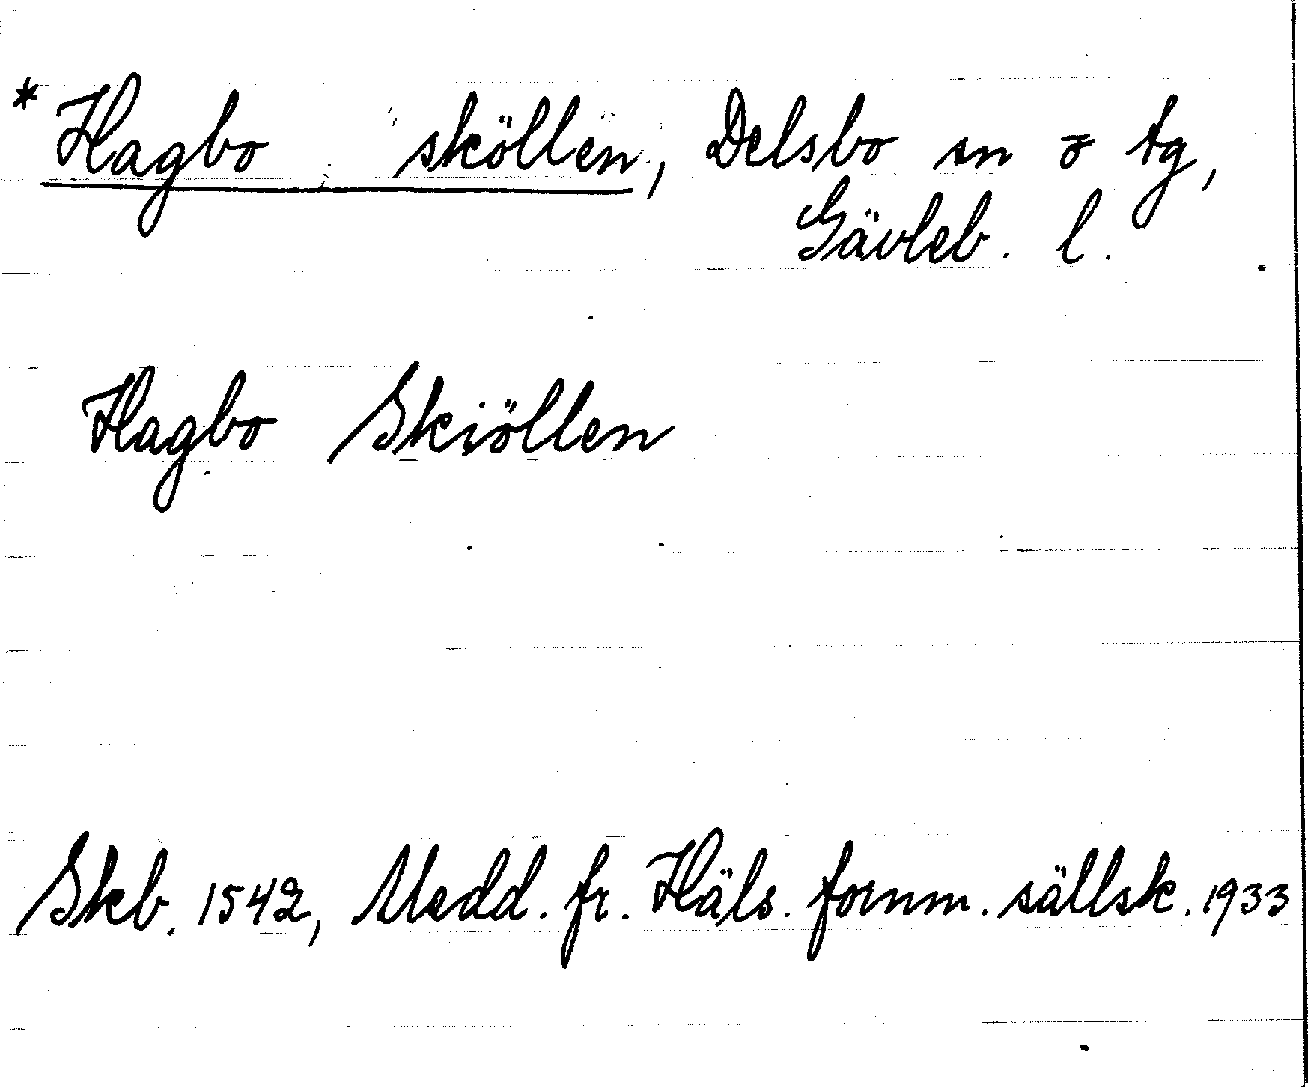 * Hagbo sköllen, Delsbo sn o tg,
Gävleb. l.
Hagbo Skiöllen
Skb. 1542, Medd. fr. Häls. fornm. sällsk. 1933